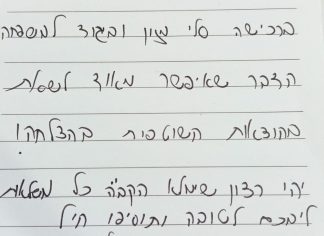 ברכישה סלי מזון וביגוד למשפחה
הדבר שאיפשר מאוד לשמחת
בהוצאות השוטפות בהצלחה!
יהי רצון שימלא הקב"ה כל משאלות
ליבכם לטובה ותוסיפו חיל